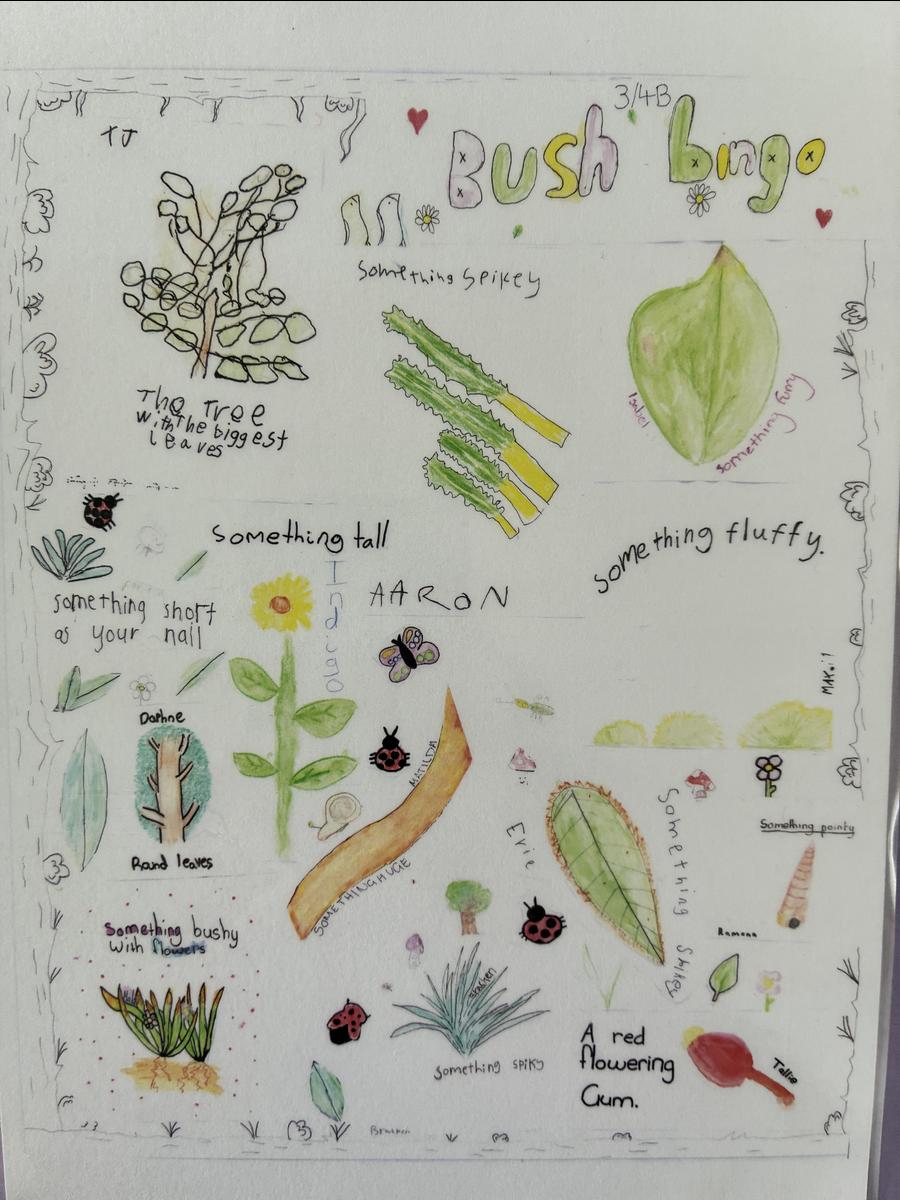 3/4B
Bush bingo
TJ
The Tree
with the biggest
leaves
something Spikey
Isabel
something furry
something tall
Indiana
AARON
something fluffy.
MAKoi1
something short
as your nail
Daphne
Round leaves
MATILDA
SOMETHING HUGE
Evie
Something Spikey
Something pointy
Ramona
Something bushy
with flowers
something spiky
A red
flowering
Gum.
Tallie